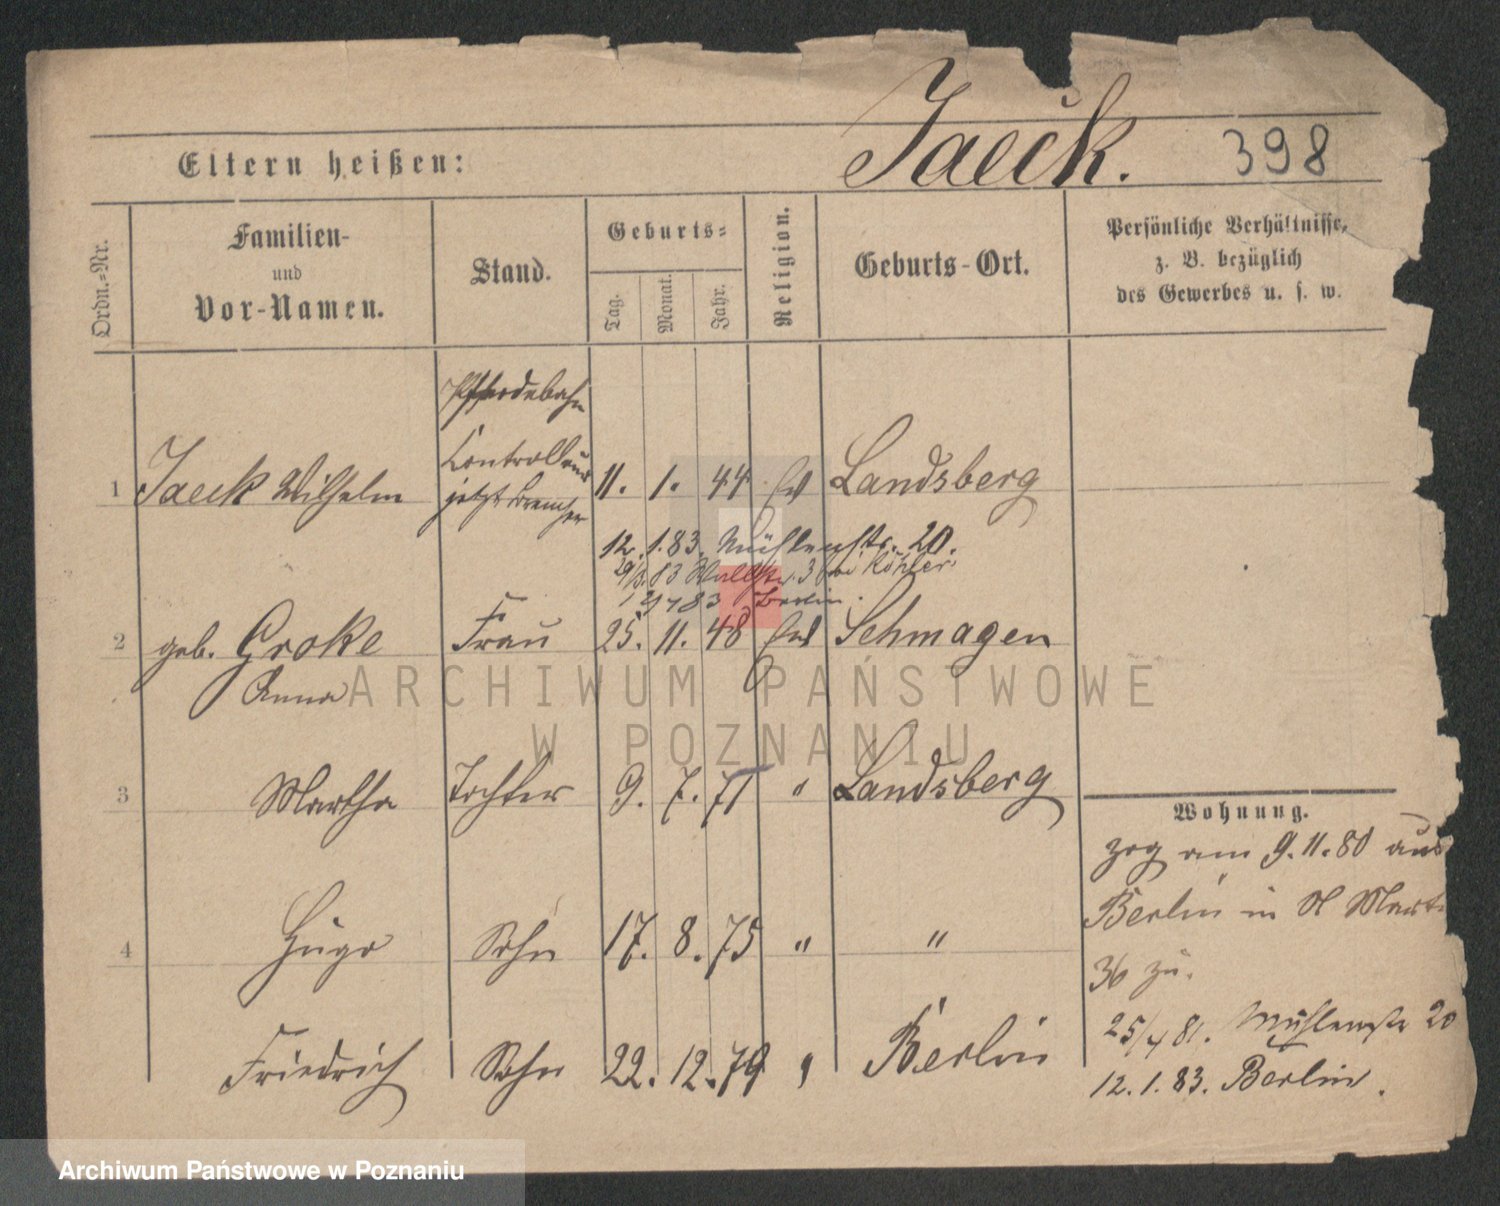 Jaeck. 398
Eltern heißen:
Ordn.=Nr.
Familien-
und
Vor-Namen.
Stand.
Geburts=
Tag.
Monat.
Jahr.
Religion.
Geburts-Ort.
Persönliche Verhältnisse,
z. B. bezüglich
des Gewerbes u. s. w.
Pferdebahn
Controlleur
1 Jaeck Wilhelm jetzt 11. 1. 44 Landsberg
12. 1. 83. Mühlenstr. 20.
83 3 bei Köhler
83 Berlin.
2 geb. Groke Frau 25. 11. 48 Schmagen
Anna
3 Martha Tochter 9. 7. 71 " Landsberg
4 Hugo Sohn 17. 8. 75 " "
Friedrich Sohn 22. 12. 79 " Berlin
Wohnung.
zog am 9. 11. 80 aus
Berlin in St Martin
36 zu.
25/4 81. Mühlenstr 20
12. 1. 83. Berlin.
ARCHIWUM PAŃSTWOWE
W POZNANIU
Archiwum Państwowe w Poznaniu